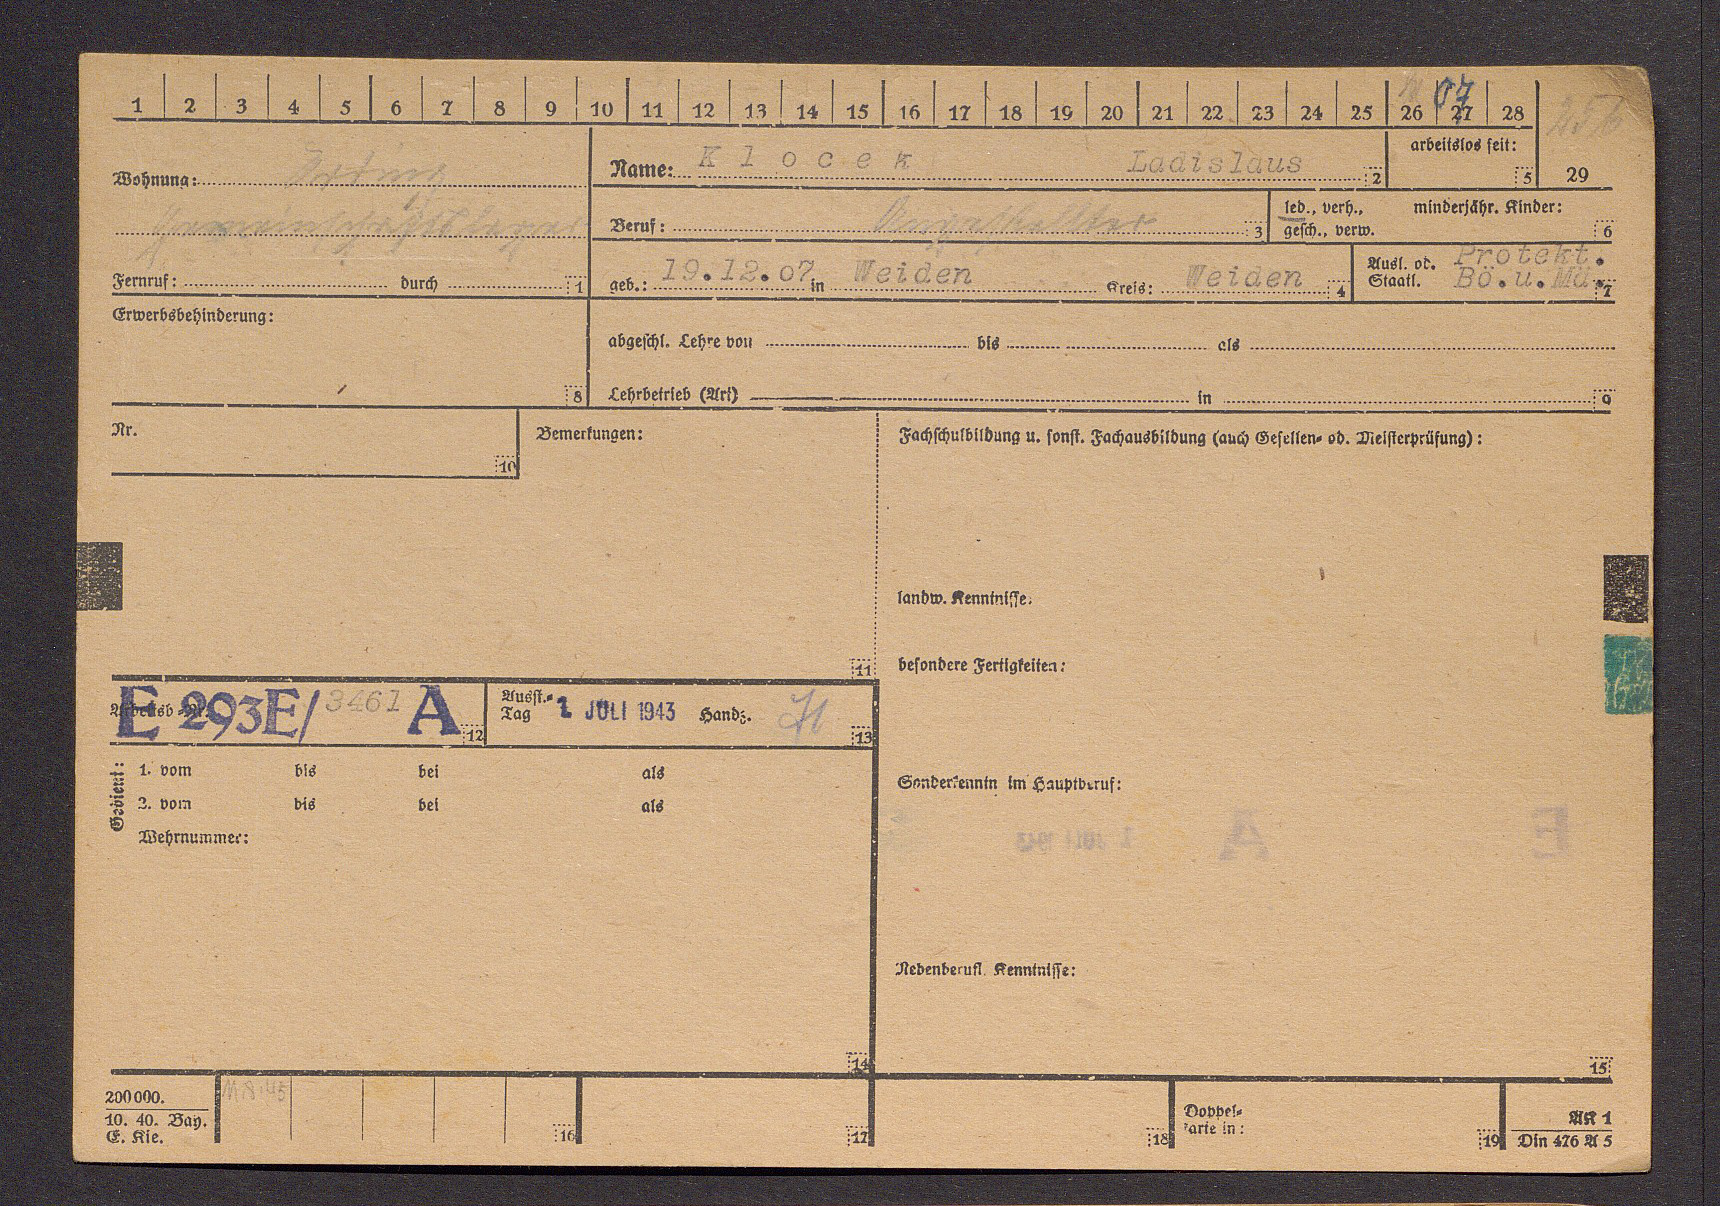 1 2 3 4 5 6 7 8 9 10 11 12 13 14 15 16 17 18 19 20 21 22 23 24 25 26 27 28
07
256
Wohnung:
Gemeinschaftslager
Fernruf: durch 1
Name: Klocek Ladislaus 2
arbeitslos seit: 5
29
Beruf: 3
led., verh., minderjähr. Kinder:
gesch., verw. 6
geb.: 19.12.07 in Weiden Kreis: Weiden 4
Ausl. od. Protekt.
Staatl. Bö.u.Mä. 7
Erwerbsbehinderung:
8
abgeschl. Lehre von bis als
Lehrbetrieb (Art) in 9
Nr.
10
Bemerkungen:
11
Fachschulbildung u. sonst. Fachausbildung (auch Gesellen- od. Meisterprüfung):
landw. Kenntnisse:
besondere Fertigkeiten:
Arbeitsb.-Nr. E 293E/3461 A 12
Ausst.-
Tag 1. JULI 1943 Handz. 13
Gedient:
1. vom bis bei als
2. vom bis bei als
Wehrnummer:
14
Sonderkenntn im Hauptberuf:
Nebenberufl. Kenntnisse:
15
200000.
10. 40. Bay.
E. Kie.
16
17
18
Doppel-
karte in: 19
AK 1
Din 476 A 5